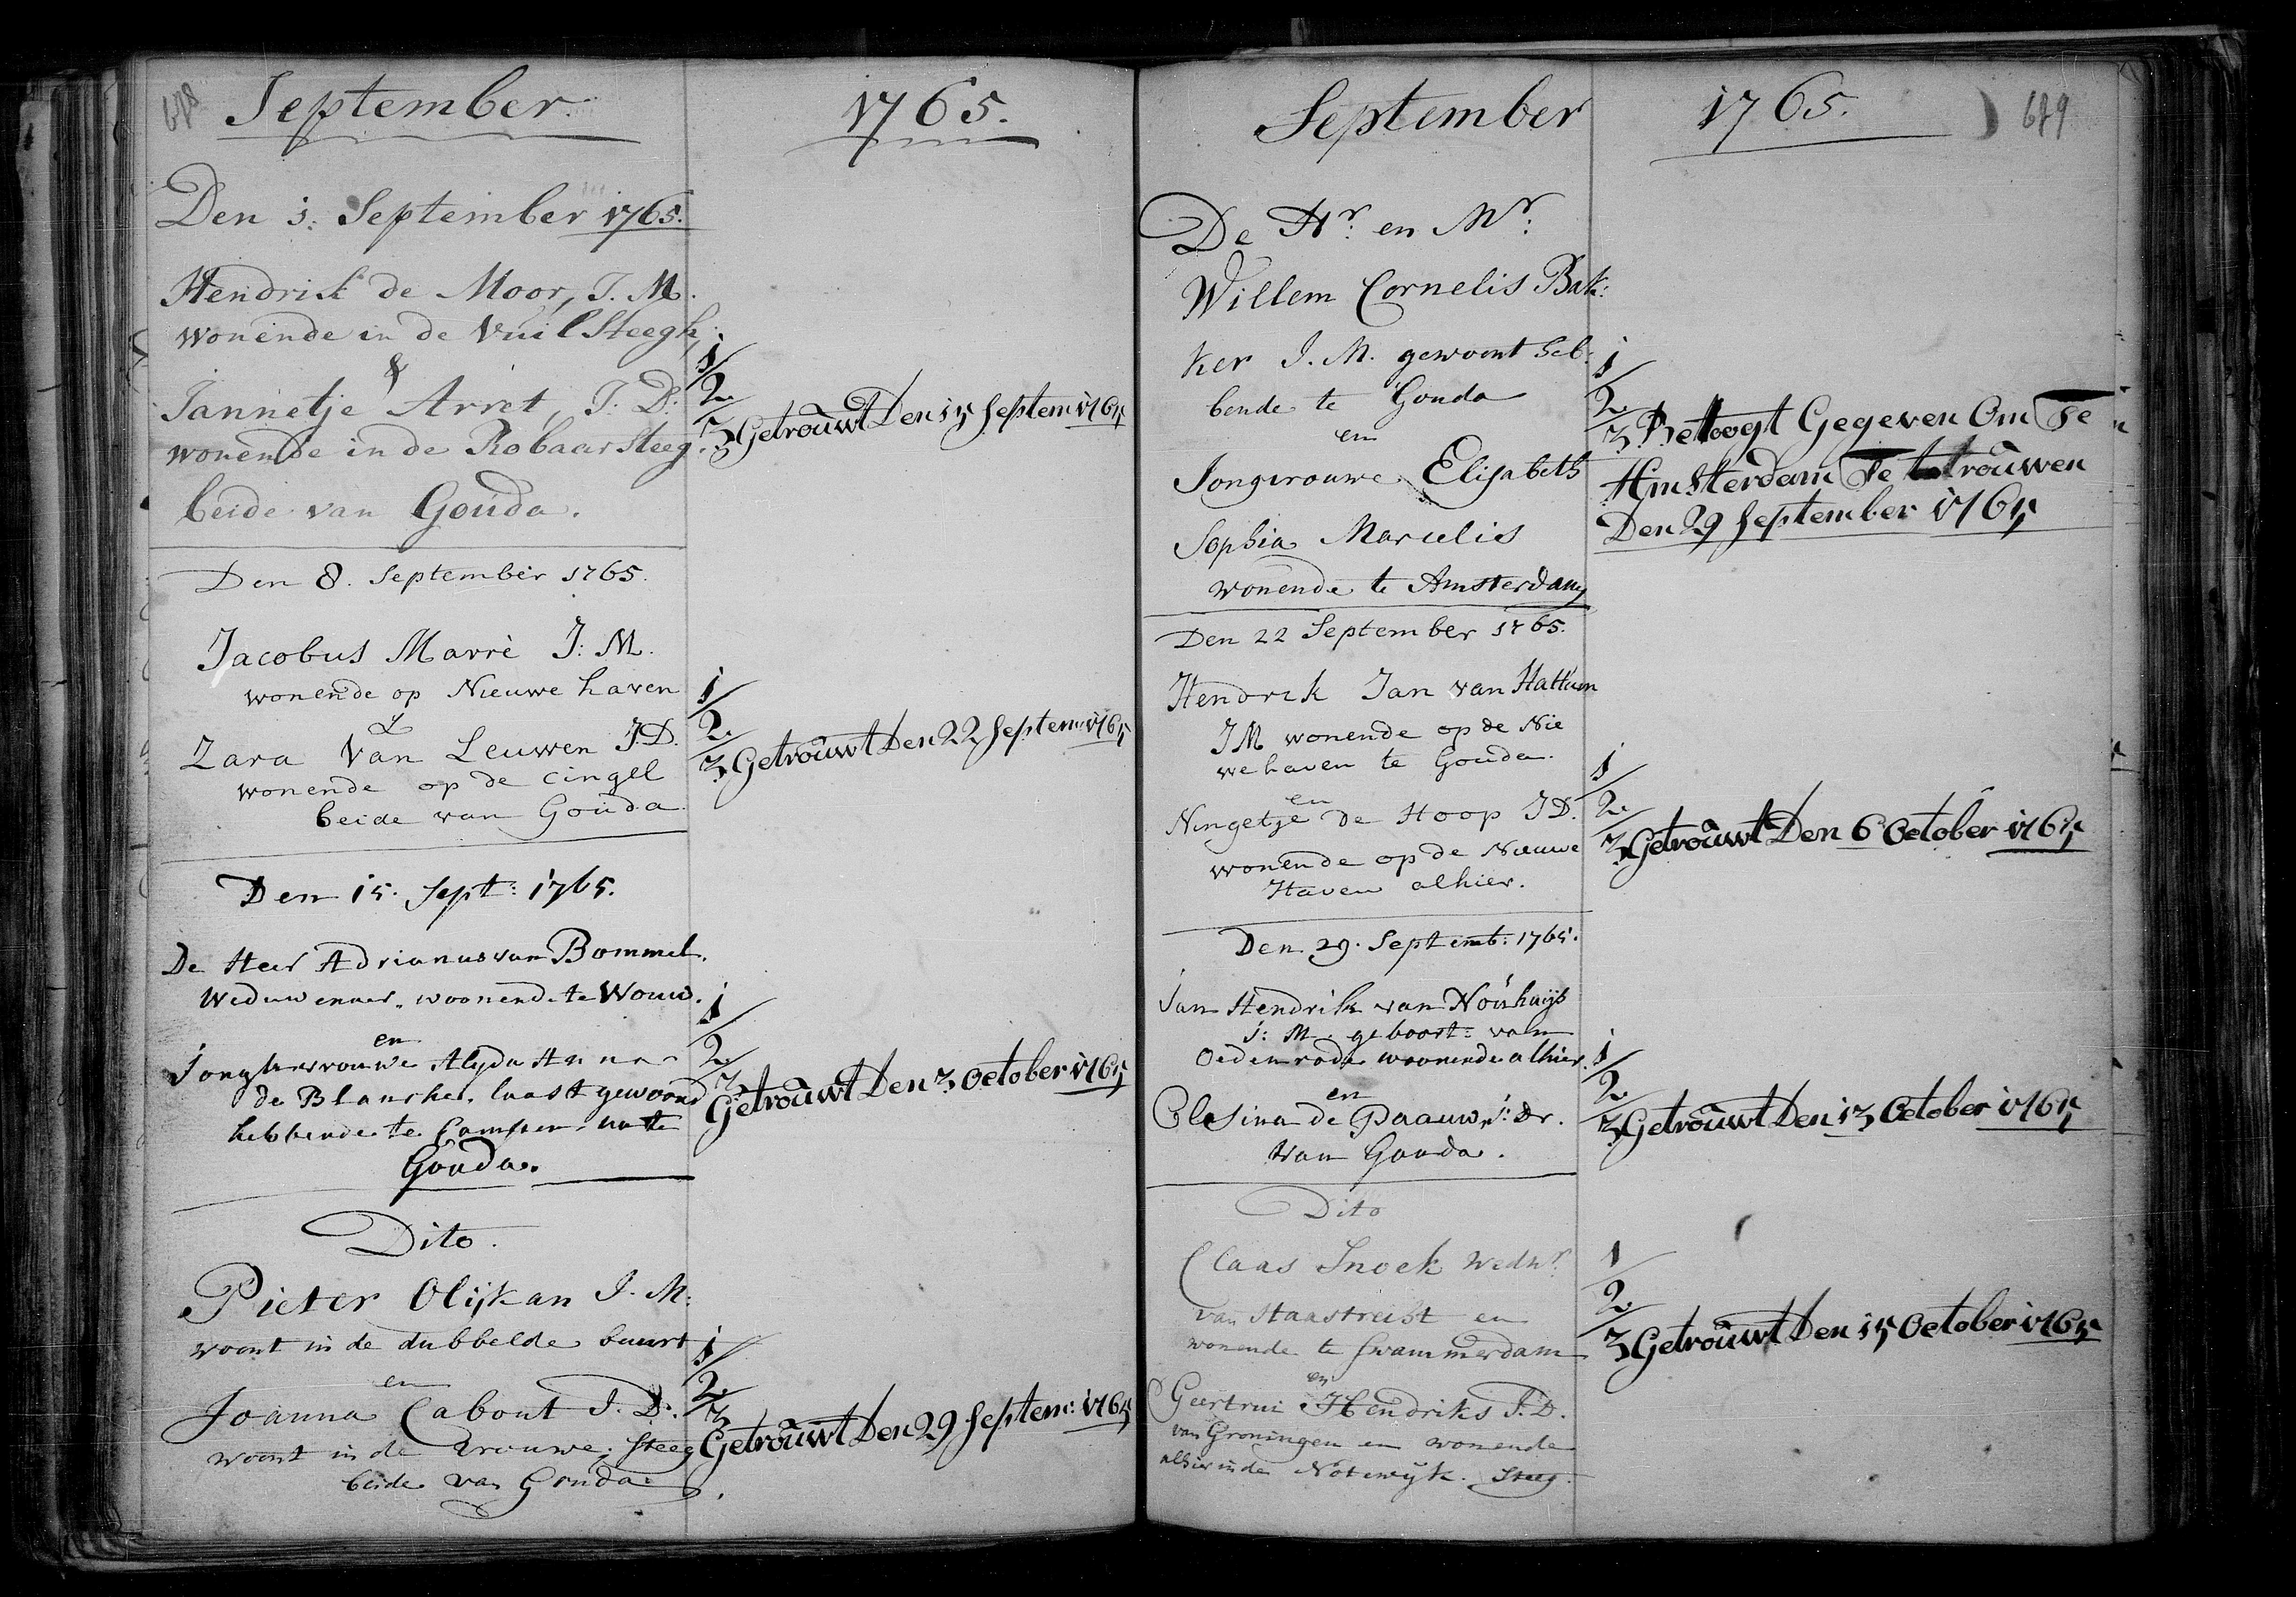 678
September.
1765.
Den 1: September 1765.
Hendrik de Moor, J. M.
wonende in de Vuil Steegh,
&
Jannetje Arret, J: D:
wonende in de Robaar Steeg.
beide van Gouda.
1/
2/
3 Getrouwt Den 15 Septem 1765
Den 8. September 1765.
Jacobus Marrè J: M.
wonende op Nieuwe haven
&
Zara Van Leuwen J.D.
wonende op de cingel
beide van Gouda
1/
2/
3 Getrouwt Den 22 Septem 1765
Den 15. Sept: 1765.
De Heer Adrianus van Bommel.
Weduwenaar, woonende te Wouw.
en
Jonghvrouwe Alyda Anna
de Blanche, laast gewoond
hebbende te Campen, nu te
Gouda.
1/
2/
3
Getrouwt Den 3 October 1765
Dito.
Pieter Olijkan J. M:
woont in de dubbelde buurt
en
Joanna Cabout J. D.
woont in de Vrouwe, steeg
beide van Gouda.
1/
2/
3
Getrouwt Den 29 Septem: 1765
September
1765.
679
De Hr. en Mr:
Willem Cornelis Bak:
ker J. M. gewoont heb:
bende te Gouda
en
Jongvrouwe Elisabeth
Sophia Marcelis
wonende te Amsterdam
1/
2/
3 Betoogt Gegeven Om Te
Amsterdam Te trouwen
Den 29 September 1765
Den 22 September 1765.
Hendrik Jan van Hattum
JM wonende op de Nie
we haven te Gouda.
en
Ningetje de Hoop JD.
wonende op de Nieuwe
Haven alhier.
1/
2/
3 Getrouwt Den 6 October 1765
Den 29. Septemb: 1765.
Jan Hendrik van Nouhuijs
J: M. geboort: van
Oedenrode woonende alhier.
en
Clasina de Paauw, J: Dr.
van Gouda.
1/
2/
3 Getrouwt Den 13 October 1765
Dito
Claas Snoek Wedwr.
van Haastrecht en
wonende te Swammerdam
en
Geertrui Hendriks J. D.
van Groningen en wonende
alhier in de Notewijk. Steeg.
1/
2/
3 Getrouwt Den 15 October 1765